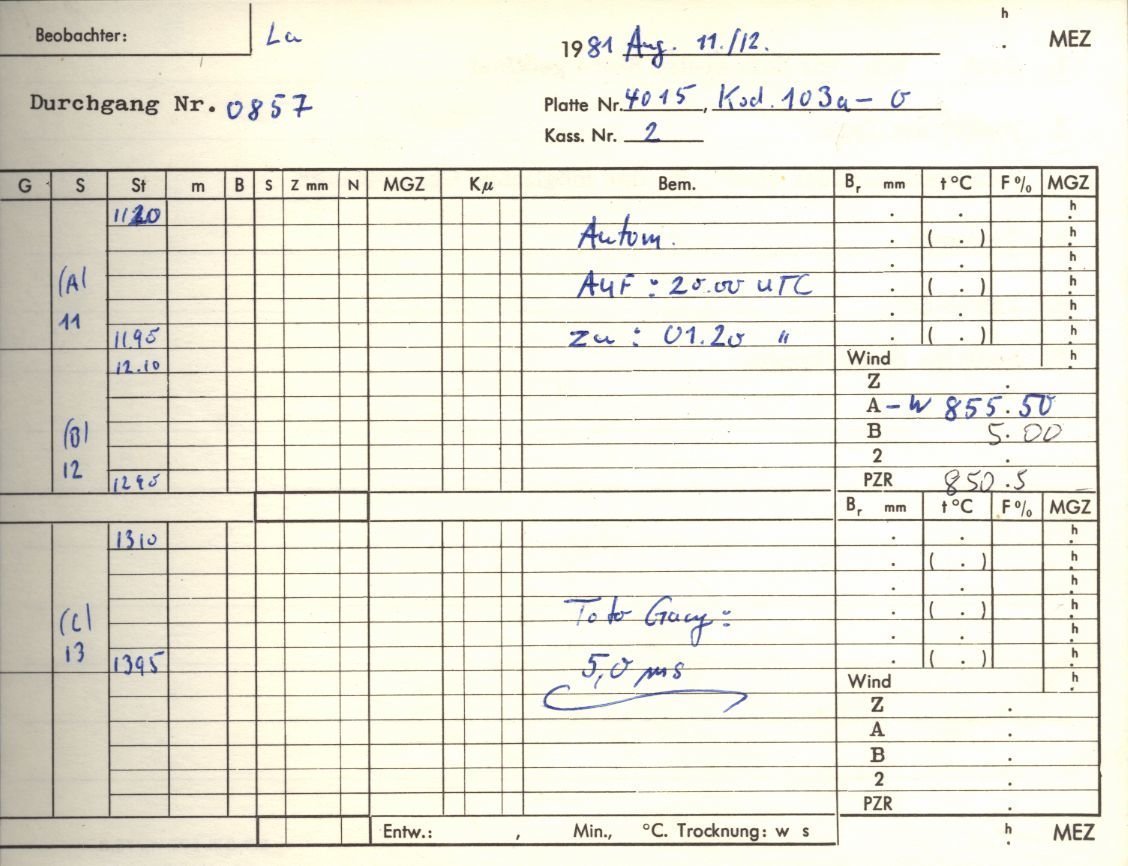 h
Beobachter: La 1981 Aug. 11./12. . MEZ
Durchgang Nr. 0857 Platte Nr. 4015, Kod. 103a-0
Kass. Nr. 2
G S St m B S Z mm N MGZ Kμ Bem. Br mm t °C F % MGZ
1120 . . h
Autom. . ( . ) h
. . h
(A) Auf : 20.00 UTC . ( . ) h
11 . . h
1195 zu : 01.20 " . ( . ) h
12.10 Wind h
Z .
A - W 855.50
(B) B 5.00
12 2 .
1295 PZR 850.5
Br mm t °C F % MGZ
1310 . . h
. ( . ) h
. . h
(C) . ( . ) h
13 . . h
1395 5,0 ms . ( . ) h
Wind h
Z .
A .
B .
2 .
PZR .
Entw.: , Min., °C. Trocknung: w s h
. MEZ